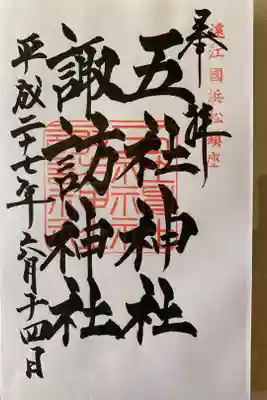 遠江國浜松鎮座
奉拝
五社神社
諏訪神社
平成二十七年六月十四日